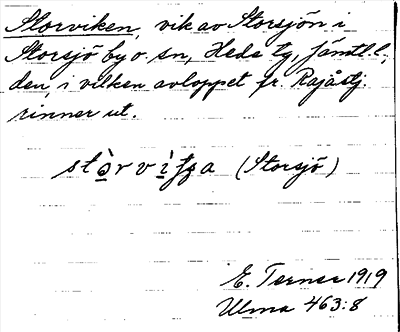 Storviken, vik av Storsjön i
Storsjö by o. sn, Hede tg, Jämtl. l.,
den, i vilken avloppet fr. Rajåstj.
rinner ut.
(Storsjö)
E. Terner 1919
Ulma 463:8